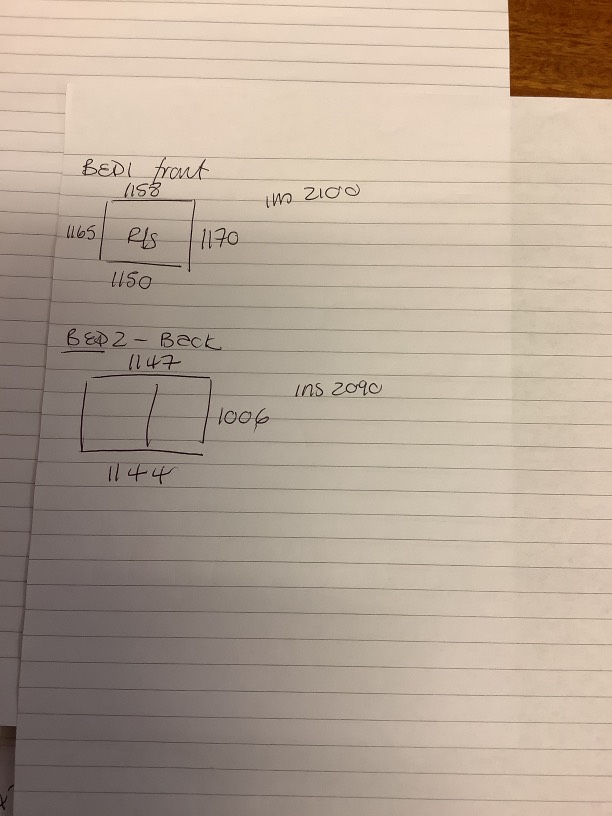 BED1 front
1158
ins 2100
1165 R/s 1170
1150
BED 2 - Back
1147
ins 2090
1006
1144